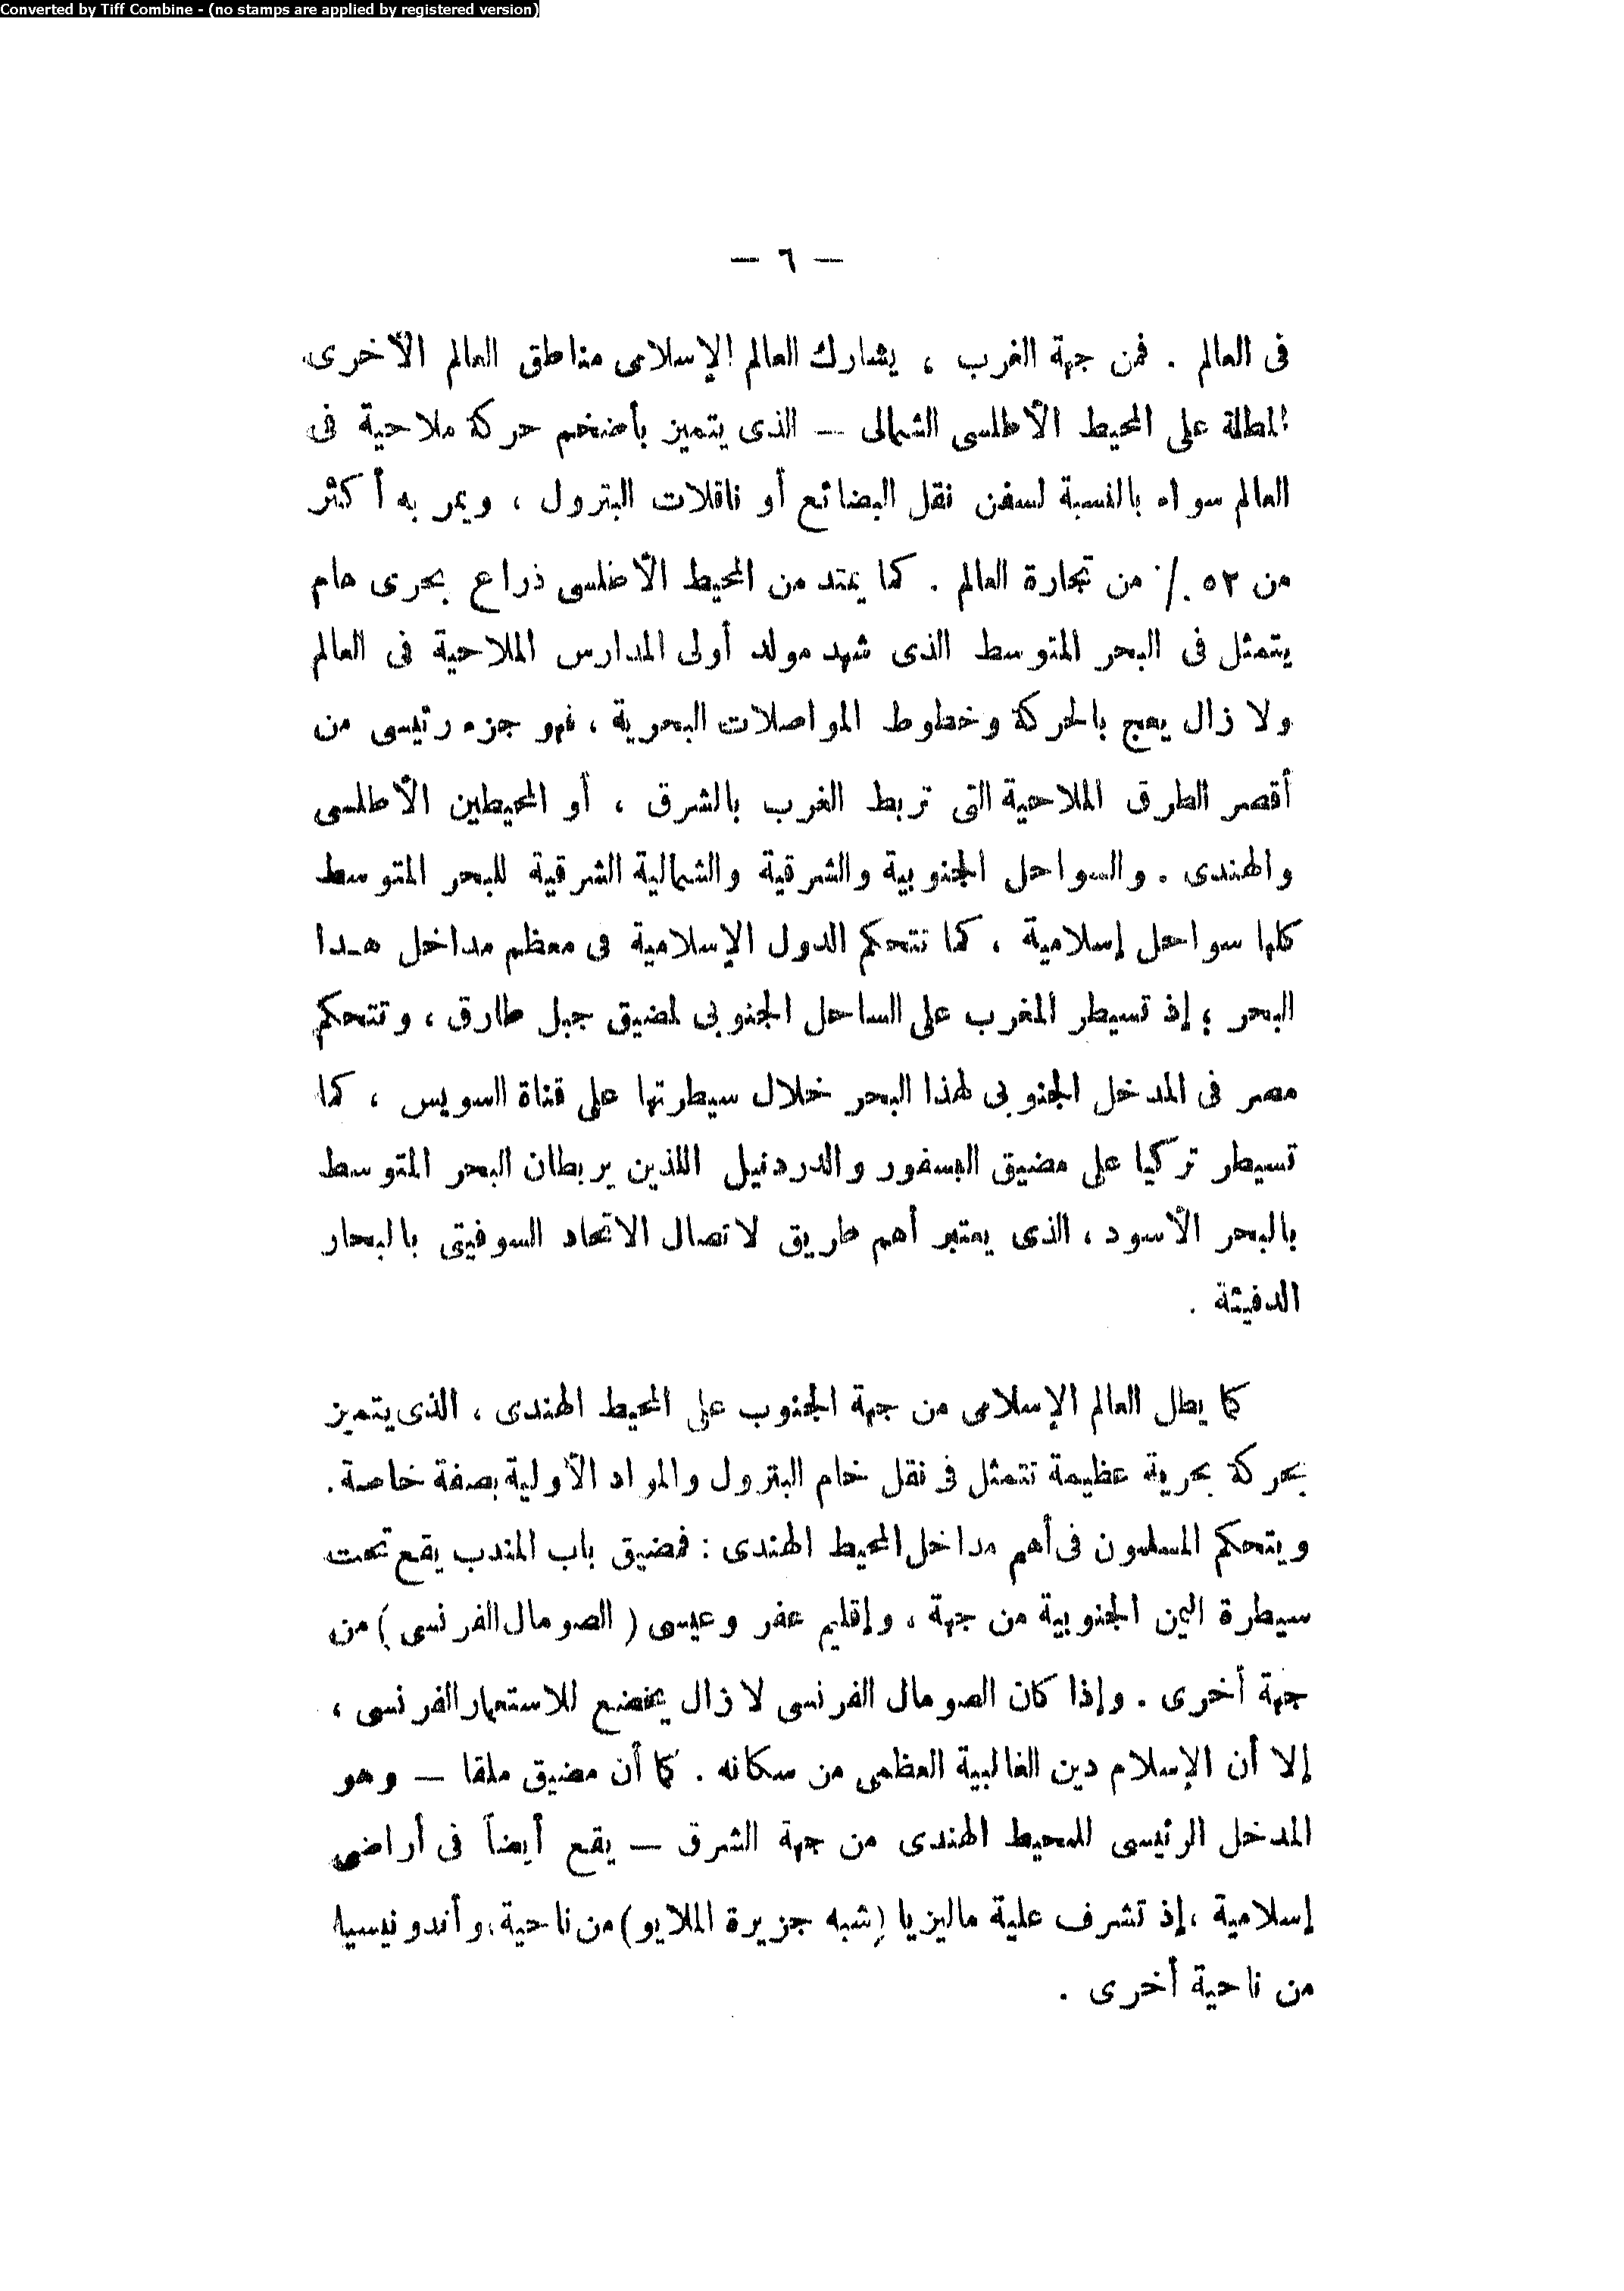 Converted by Tiff Combine - (no stamps are applied by registered version)
— ٦ —
فى العالم . فمن جهة الغرب ، يشارك العالم الإسلامى مناطق العالم الأخرى
المطلة على المحيط الأطلسى الشمالى — الذى يتميز بأضخم حركة ملاحية فى
العالم سواء بالنسبة لسفن نقل البضائع أو ناقلات البترول ، ويمر به أكثر
من ٥٢ ٪ من تجارة العالم . كما يمتد من المحيط الأطلسى ذراع بحرى هام
يتمثل فى البحر المتوسط الذى شهد مولد أولى المدارس الملاحية فى العالم
ولا زال يعج بالحركة وخطوط المواصلات البحرية ، فهو جزء رئيسى من
أقصر الطرق الملاحية التى تربط الغرب بالشرق ، أو المحيطين الأطلسى
والهندى . والسواحل الجنوبية والشرقية والشمالية الشرقية للبحر المتوسط
كلها سواحل إسلامية ، كما تتحكم الدول الإسلامية فى معظم مداخل هـذا
البحر ؛ إذ تسيطر المغرب على الساحل الجنوبى لمضيق جبل طارق ، وتتحكم
مصر فى المدخل الجنوبى لهذا البحر خلال سيطرتها على قناة السويس ، كما
تسيطر تركيا على مضيق البسفور والدردنيل اللذين يربطان البحر المتوسط
بالبحر الأسود ، الذى يعتبر أهم طريق لاتصال الاتحاد السوفيتى بالبحار
الدفيئة .
كما يطل العالم الإسلامى من جهة الجنوب على المحيط الهندى ، الذى يتميز
بحركة بحرية عظيمة تتمثل فى نقل خام البترول والمواد الأولية بصفة خاصة .
ويتحكم المسلمون فى أهم مداخل المحيط الهندى : فمضيق باب المندب يقع تحت
سيطرة اليمن الجنوبية من جهة ، وإقليم عفر وعيسى ( الصومال الفرنسى ) من
جهة أخرى . وإذا كان الصومال الفرنسى لا زال يخضع للاستعمار الفرنسى ،
إلا أن الإسلام دين الغالبية العظمى من سكانه . كما أن مضيق ملقا — وهو
المدخل الرئيسى للمحيط الهندى من جهة الشرق — يقع أيضاً فى أراضى
إسلامية ، إذ تشرف علية ماليزيا ( شبه جزيرة الملايو ) من ناحية ، وأندونيسيا
من ناحية أخرى .